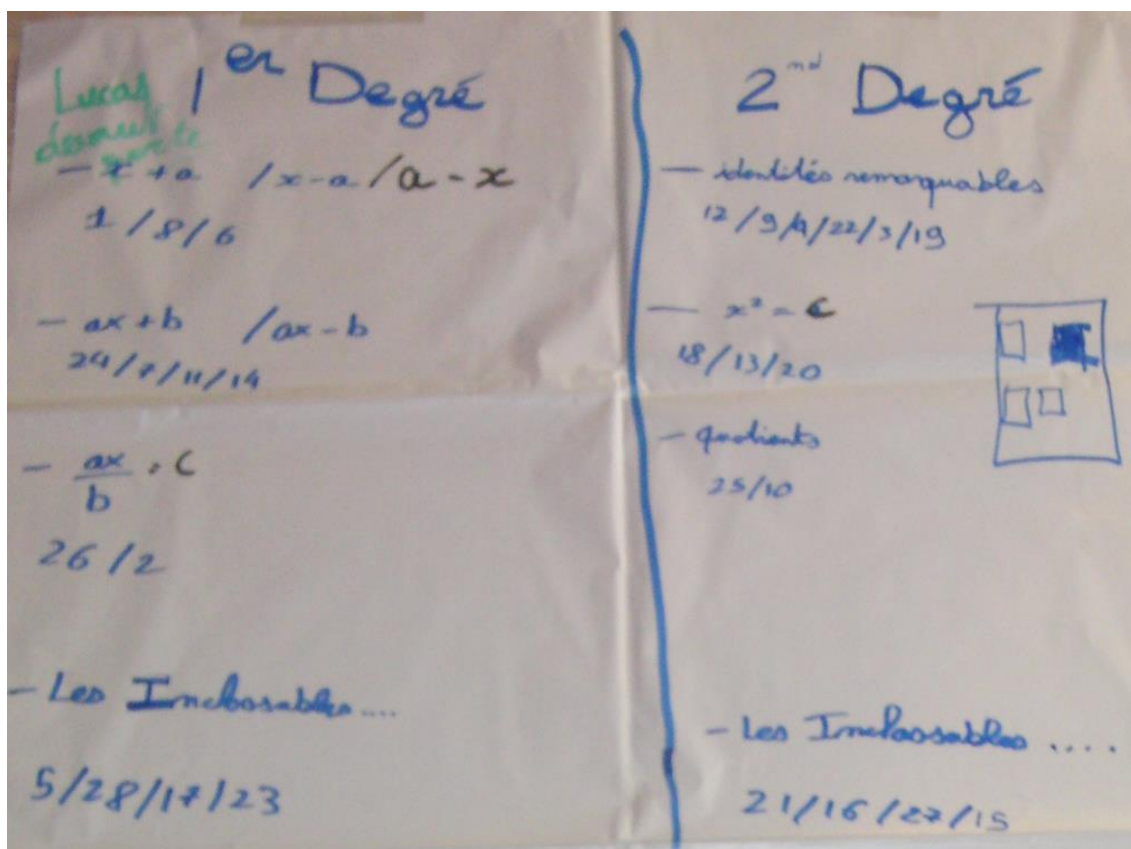 Lucas
1er Degré
- x + a / x - a / a - x
1 / 8 / 6
- ax + b / ax - b
24 / 7 / 11 / 14
- ax/b = c
26 / 2
- Les Inclassables ....
5/28/17/23
2nd Degré
- identités remarquables
12/9/4/22/3/19
- x² = c
18/13/20
- quotients
25/10
- Les Inclassables ....
21/16/27/15